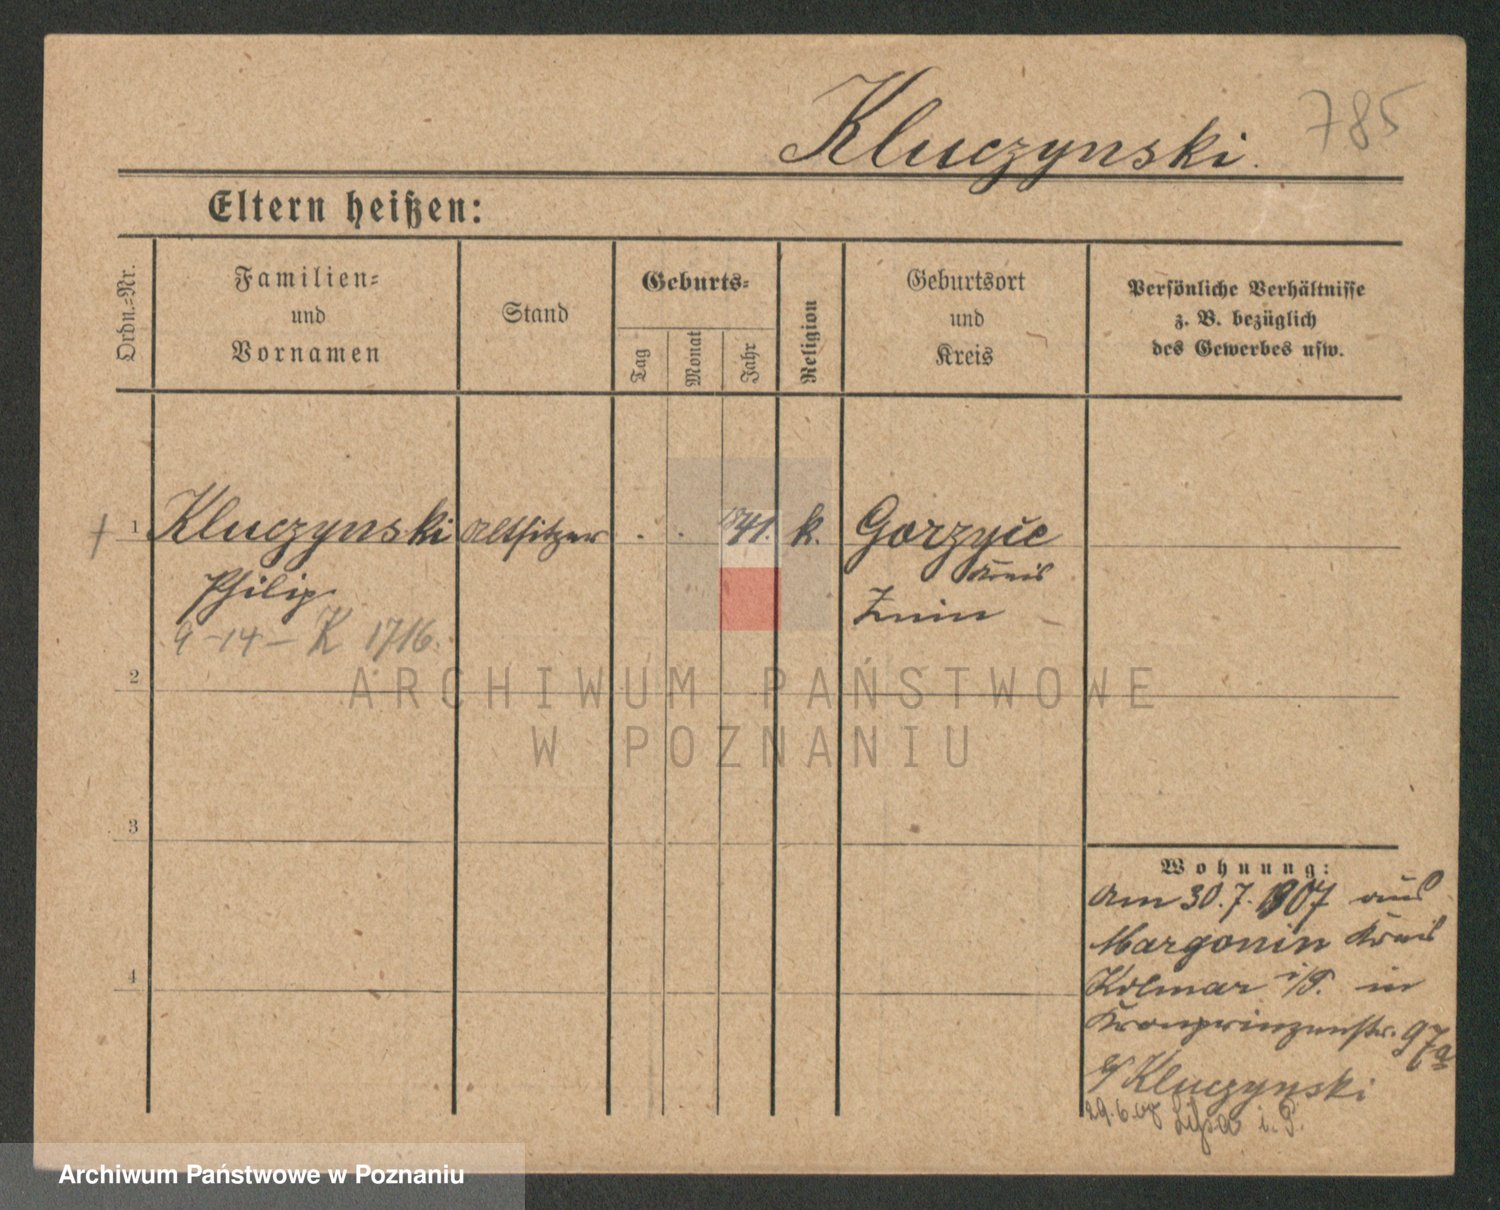 Kluczynski.
785
Eltern heißen:
Ordn.=Nr.
Familien=
und
Vornamen
Stand
Geburts=
Tag
Monat
Jahr
Religion
Geburtsort
und
Kreis
Persönliche Verhältnisse
z. B. bezüglich
des Gewerbes usw.
1 Kluczynski Altsitzer . . 1841. k. Gorzyce
Kreis
Philip Znin
9-14- K 1716.
2
ARCHIWUM PAŃSTWOWE
W POZNANIU
3
Wohnung:
Am 30.7.1907 aus
Margonin Kreis
4
Kolmar i/P. in
Kronprinzenstr. 97a
b/ Kluczynski
29.6.08 Lissa i. P.
Archiwum Państwowe w Poznaniu